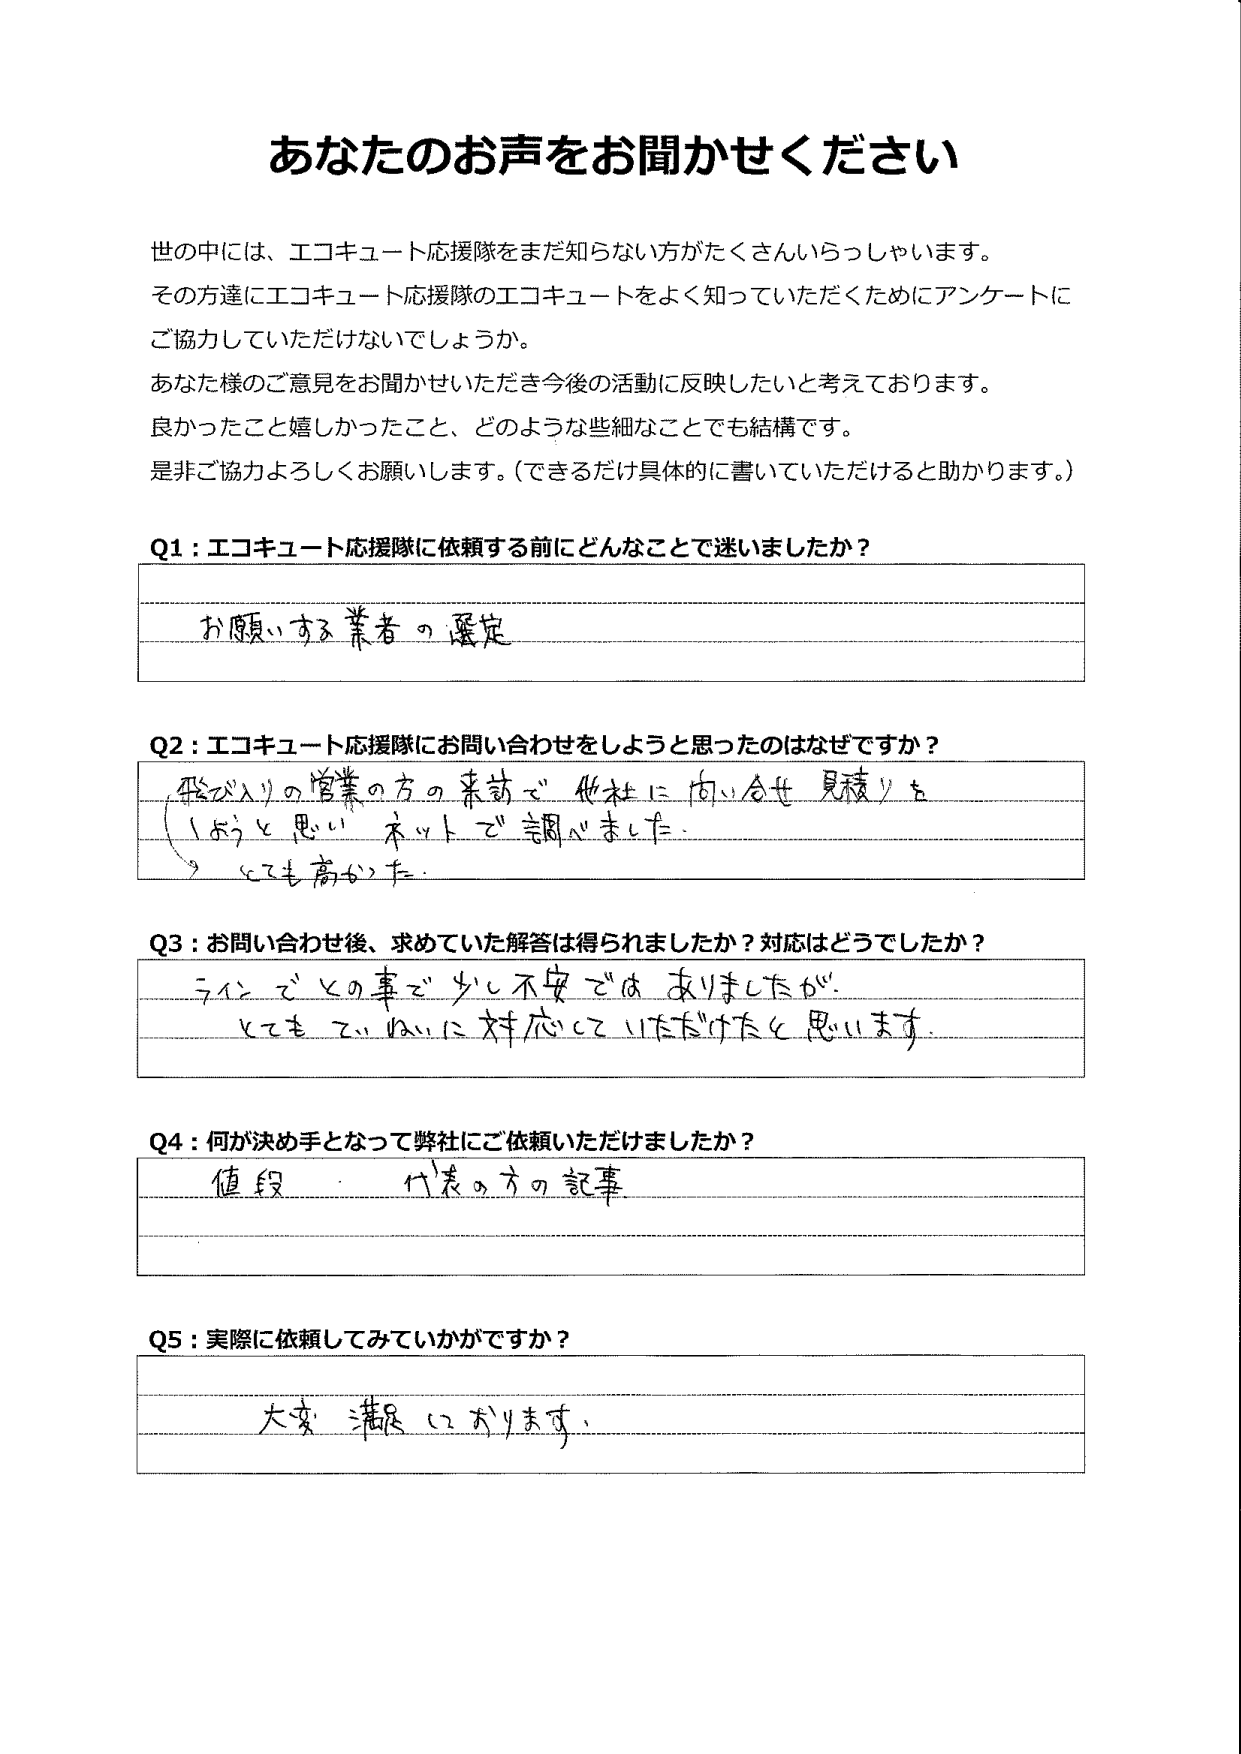 あなたのお声をお聞かせください
世の中には、エコキュート応援隊をまだ知らない方がたくさんいらっしゃいます。
その方達にエコキュート応援隊のエコキュートをよく知っていただくためにアンケートに
ご協力していただけないでしょうか。
あなた様のご意見をお聞かせいただき今後の活動に反映したいと考えております。
良かったこと嬉しかったこと、どのような些細なことでも結構です。
是非ご協力よろしくお願いします。（できるだけ具体的に書いていただけると助かります。）
Q1：エコキュート応援隊に依頼する前にどんなことで迷いましたか？
お願いする業者の選定
Q2：エコキュート応援隊にお問い合わせをしようと思ったのはなぜですか？
飛び入りの営業の方の来訪で 他社に問い合せ 見積りを
しようと思い ネットで調べました。
とても高かった。
Q3：お問い合わせ後、求めていた解答は得られましたか？対応はどうでしたか？
ラインでとの事で少し不安ではありましたが、
とてもていねいに対応していただけたと思います。
Q4：何が決め手となって弊社にご依頼いただけましたか？
値段 代表の方の記事
Q5：実際に依頼してみていかがですか？
大変満足しております。